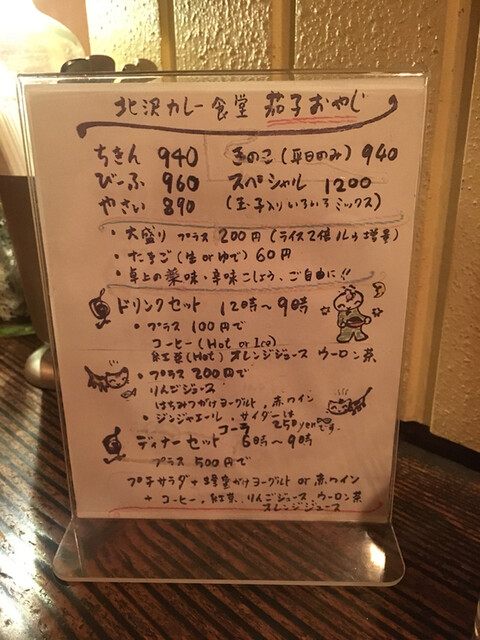 北沢カレー食堂 茄子おやじ
ちきん 940 きのこ(平日のみ) 940
びーふ 960 スペシャル 1200
やさい 890 (玉子入りいろいろミックス)
・大盛り プラス 200円 (ライス2倍 ルウ増量)
・たまご (生 or ゆで) 60円
・卓上の薬味・辛味こしょう、ご自由に!!
ドリンクセット 12時〜9時
・プラス 100円で
コーヒー (Hot or Ice)
紅茶 (Hot) オレンジジュース ウーロン茶
・プラス 200円で
りんごジュース
はちみつがけヨーグルト, 赤ワイン
・ジンジャエール, サイダーは
コーラ 250yenです
ディナーセット 6時〜9時
プラス 500円で
プチサラダ + 蜂蜜がけヨーグルト or 赤ワイン
+ コーヒー, 紅茶, りんごジュース, ウーロン茶
オレンジジュース